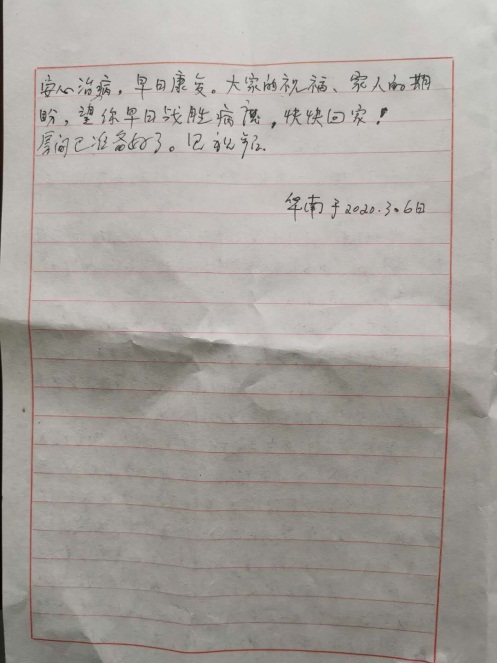 安心治病，早日康复。大家的祝福、家人的期
盼，望你早日战胜病魔，快快回家！
房间已准备好了。已
南于2020.3.6日